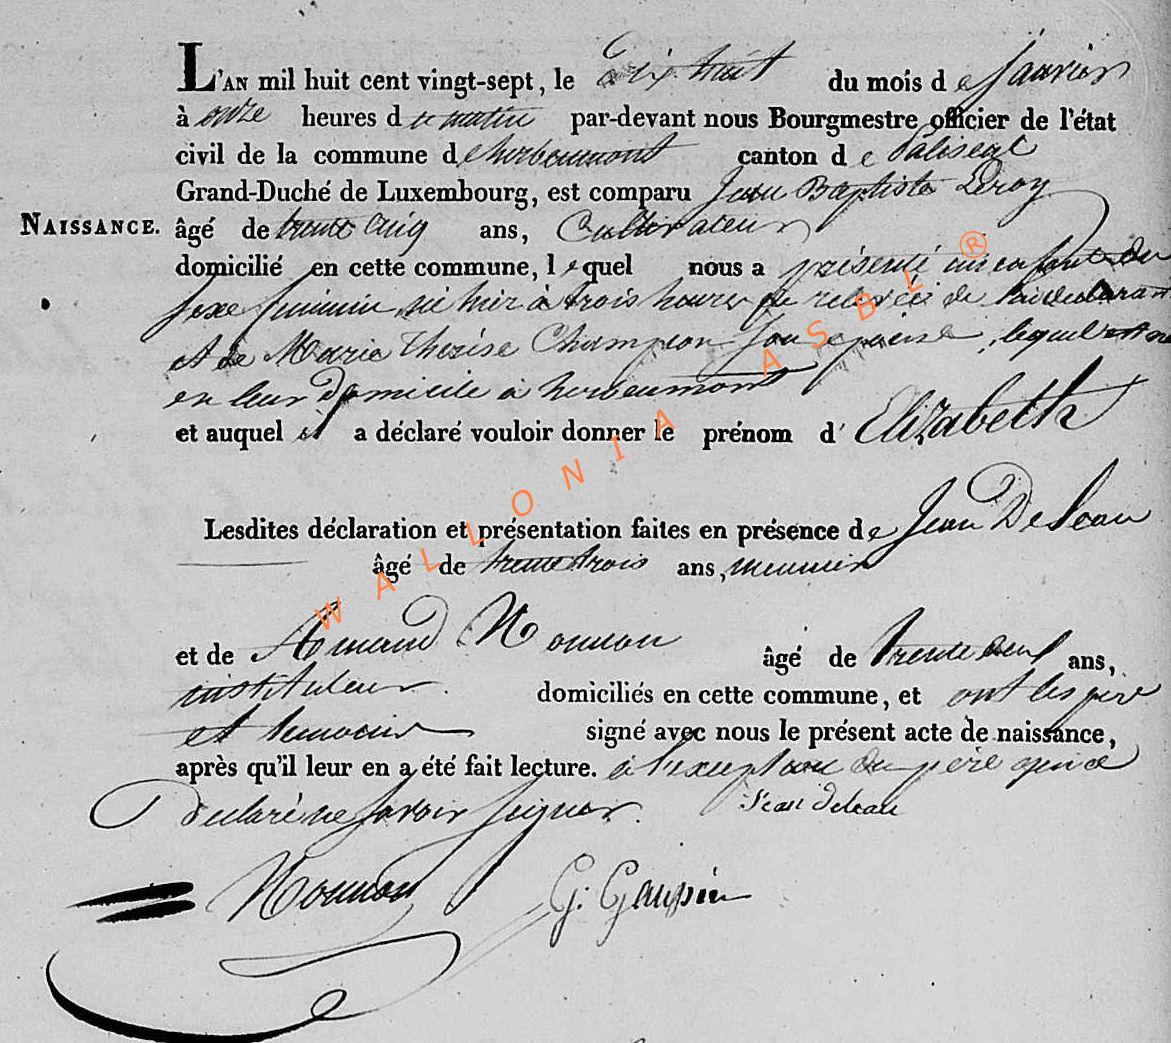 L'AN mil huit cent vingt-sept, le dix huit du mois de janvier
à onze heures du matin par-devant nous Bourgmestre officier de l'état
civil de la commune d'herbeumont canton de Paliseul
Grand-Duché de Luxembourg, est comparu Jean Baptiste Leroy
NAISSANCE. âgé de trente cinq ans, Cultivateur
domicilié en cette commune, lequel nous a présenté un enfant du
sexe feminin, né hier à trois heures de relevée de lui declarant
et de Marie Thérèse Champion son epouse, lequel
en leur domicile à herbeumont
et auquel il a déclaré vouloir donner le prénom d'Elizabeth
Lesdites déclaration et présentation faites en présence de Jean Deleau
âgé de trente trois ans, meunier
et de Nonnon âgé de trente ans,
instituteur. domiciliés en cette commune, et ont les père
et temoins signé avec nous le présent acte de naissance,
après qu'il leur en a été fait lecture. à l'exception du père qui a
declaré ne savoir signer. Jean deleau
Nonnon G: Gaupin
WALLONIA ASBL ®